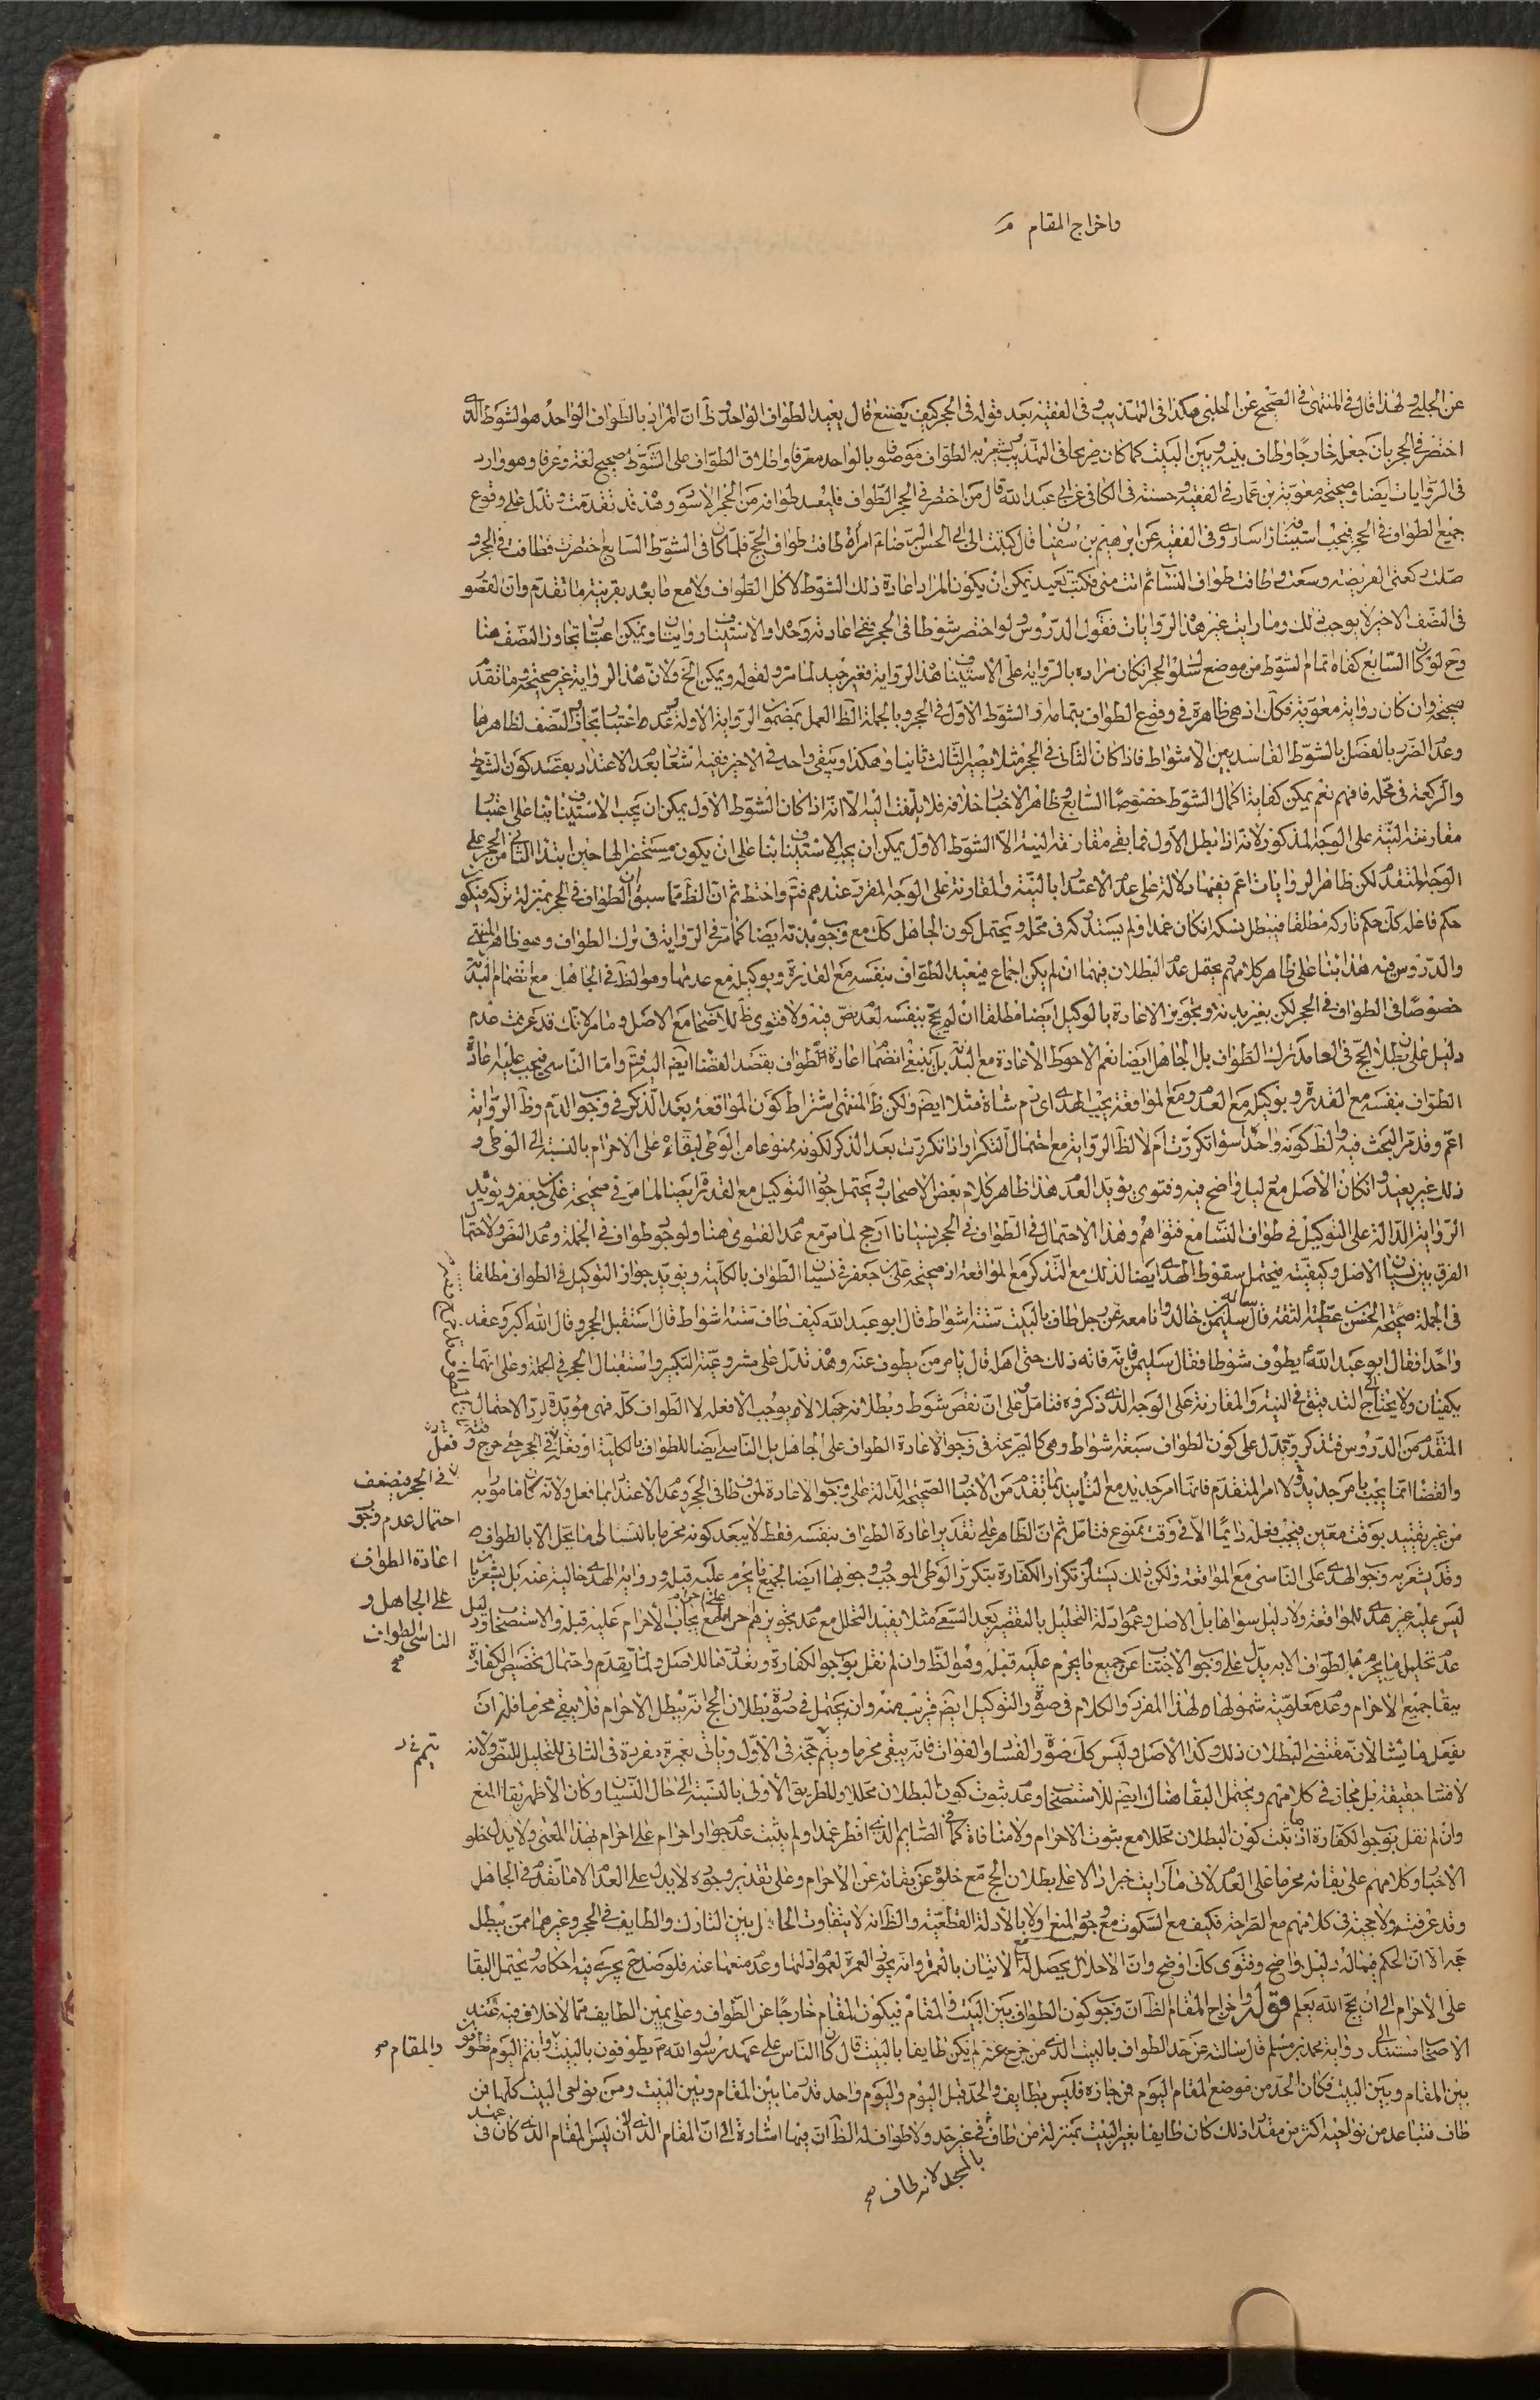 واخراج المقام
عن الحلبي ولهذا قال في المنتهى في الصحيح عن الحلبي هكذا في التهذيب وفي الفقيه بعد قوله في الحجر كيف يصنع قال يعيد الطواف الواحد وظ ان المراد بالطواف الواحد هو الشوط الذي
اختصر في الحجر بان جعله خارجا وطاف بينه وبين البيت كما كان صريحا في التهذيب يشعر به الطواف موصوفا بالواحد معرفا واطلاق الطواف على الشوط صحيح لغة وعرفا وهو وارد
في الروايات ايضا وصحيحة معوية بن عمار في الفقيه وحسنته في الكافي عن ابي عبد الله قال من اختصر في الحجر الطواف فليعد طوافه من الحجر الاسود وهذه قد تقدمت وتدل على وقوع
جميع الطواف في الحجر فيجب استينافه راسا وروى في الفقيه عن ابرهيم بن سفين قال كتبت الى ابي الحسن الرضا امرأة طافت طواف الحج فلما كان في الشوط السابع اختصرت فطافت في الحجر و
صلت ركعتي الفريضة وسعت وطافت طواف النسا ثم اتت منى فكتب تعيد يمكن ان يكون المراد اعادة ذلك الشوط لا كل الطواف ولا مع ما بعد بقرينة ما تقدم وان القصور
في النصف الاخير لا يوجب ذلك وما رايت غير هذه الروايات فقول الدروس ولو اختصر شوطا في الحجر ففي اعادته وحده او الاستيناف روايتان ويمكن اعتبار تجاوز النصف هنا
وح لو كان السابع كفاه اتمام الشوط من موضع سلوك الحجر ان كان مراده بالرواية على الاستيناف هذه الرواية فغير جيد لما مر ولقوله ويمكن الخ ولان هذه الرواية غير صحيحة وما تقدم
صحيحة وان كان رواية معوية فكك اذ هي ظاهرة في وقوع الطواف بتمامه او الشوط الاول في الحجر وبالجملة الظ العمل بمضمون الرواية الاولة وعدم اعتبار تجاوز النصف لظاهرها
وعدم الضرر بالفصل بالشوط الفاسد بين الاشواط فاذا كان الثاني في الحجر مثلا يصير الثالث ثانيا وهكذا ويبقى واحد في الاخير ففيه اشعار بعدم الاعتداد بقصد كون الشوط
والركعة في محله فافهم نعم يمكن كفاية اكمال الشوط خصوصا السابع وظاهر الاخبار خلافه فلا يلتفت اليه الا انه اذا كان الشوط الاول يمكن ان يجب الاستيناف بنا على اعتبار
مقارنة النية على الوجه المذكور لانه اذا بطل الاول فما بقي مقارنة النية الا الشوط الاول يمكن ان يجب الاستيناف بنا على ان يكون مستحضرا لها حين ابتدا الثاني من الحجر على
الوجه المتقدم لكن ظاهر الروايات اعم ففيها دلالة على عدم الاعتداد بالنية والمقارنة على الوجه المقرر عندهم فتم واحتط ثم ان الظ مما سبق ان الطواف في الحجر بمنزلة تركه فيكون
حكم فاعله كك حكم تاركه مطلقا فيبطل نسكه ان كان عمدا ولم يستدركه في محله ويحتمل كون الجاهل كك مع وجوب بدنة ايضا كما مر في الرواية في ترك الطواف وهو ظاهر المنتهى
والدروس فيه هذا بنا على ظاهر كلامهم يحتمل عدم البطلان فيهما ان لم يكن اجماع فيعيد الطواف بنفسه مع القدرة وبوكيله مع عدمها وهو الظ في الجاهل مع انضمام البدنة
خصوصا في الطواف في الحجر لكن بغير بدنة وتجويز الاعادة بالوكيل ايضا مطلقا ان لم يحج بنفسه لعدم نص فيه ولا فتوى ظ للاصحاب مع الاصل وما مر لانك قد عرفت عدم
دليل على بطلان الحج في العامد ترك الطواف بل الجاهل ايضا نعم الاحوط الاعادة مع البدنة بل ينبغي انضمام اعادة الطواف بقصد القضا ايضا اليه فتم واما الناسي فيجب عليه اعادة
الطواف بنفسه مع القدرة وبوكيله مع العدم ومع المواقعة يجب الهدي اي دم شاة مثلا ايضا ولكن ظ المنتهى اشتراط كون المواقعة بعد الذكر في وجوب الدم وظ الرواية
اعم وقد مر البحث فيه والظ كونه واحدا سواء تكررت ام لا لظ الرواية مع احتمال التكرار اذا تكررت بعد الذكر لكونه ممنوعا من الوطي لبقاءه على الاحرام بالنسبة الى الوطي و
ذلك غير بعيد وان كان الاصل مع دليل واضح فيه وفتوى يؤيد العدم هذا ظاهر كلام بعض الاصحاب ويحتمل جواز التوكيل مع القدرة ايضا لما مر في صحيحة علي بن جعفر ويؤيد
الرواية الدالة على التوكيل في طواف النسا مع فتواهم وهذا الاحتمال في الطواف في الحجر نسيانا ارجح لما مر مع عدم الفتوى هنا ولوجود طواف في الجملة وعدم النص ولاحتمال
الفرق بين نسيان الاصل وكيفيته فيحتمل سقوط الهدي ايضا لذلك مع التذكر مع المواقعة اذ صحيحة علي بن جعفر في نسيان الطواف بالكلية ويؤيد جواز التوكيل في الطواف مطلقا
في الجملة صحيحة الحسن بن عطية الثقة قال سأله سليمن بن خالد وانا معه عن رجل طاف بالبيت ستة اشواط قال ابو عبد الله كيف طاف ستة اشواط قال استقبل الحجر وقال الله اكبر وعقد
واحدا فقال ابو عبد الله يطوف شوطا فقال سليمن فانه فاته ذلك حتى اتى اهله قال يامر من يطوف عنه وهذه تدل على مشروعية التكبير واستقبال الحجر في الجملة وعلى انهما
يكفيان ولا يحتاج الى التدقيق في النية والمقارنة على الوجه الذي ذكروه فتامل وعلى ان نقص شوط وبطلانه جهلا لا يوجب الا فعله لا الطواف كله فهي مؤيدة لرد الاحتمال
المتقدم من الدروس فتذكر وتدل على كون الطواف سبعة اشواط وهي كالصريحة في وجوب الاعادة الطواف على الجاهل بل الناسي ايضا للطواف بالكلية او بفعله في الحجر حتى خرج وقته
والقضا انما يجب بامر جديد لا الامر المتقدم فانما امر جديد مع التاييد بما تقدم من الاخبار الصحيحة الدالة على وجوب الاعادة لمن طاف في الحجر وعدم الاعتداد بما فعل ولانه كان مامورا به
من غير تقييد بوقت معين فيجب فعله دائما الا في وقت ممنوع فتامل ثم ان الظاهر على تقدير اعادة الطواف بنفسه فقط لا يبعد كونه محرما بالنسا الى ما يحل الا بالطواف
وقد يشعر به وجوب الهدي على الناسي مع المواقعة ولكن ذلك يستلزم تكرار الكفارة بتكرر الوطي الموجب وجوبها ايضا لجميع ما يحرم عليه قبله ورواية الهدي خالية عنه بل يشعر بان
ليس عليه غير هدي للمواقعة ولا دليل سواها بل الاصل وعموم ادلة التحليل بالتقصير بعد السعي مثلا يفيد التحلل مع عدم تجويزهم احرامه على احرامه مع بجانب الاحرام عليه قبله والاستصحاب ودليل
عدم تحليل ما يحرم بالطواف الا به يدل على وجوب الاجتناب عن جميع ما يحرم عليه قبله وهو الظ وان لم نقل بوجوب الكفارة وتعددها للاصل ولما تقدم واحتمال تخصيص الكفارة
ببقا جميع الاحرام وعدم معلومية شمولها لهذا المفرد والكلام في صورة التوكيل ايضا قريب منه وان يحتمل في صورة بطلان الحج انه يبطل الاحرام فلا يبقى محرما فله ان
يفعل ما يشا لان مقتضى البطلان ذلك وكذا الاصل وليس كك صورة الفساد والفوات فانه يبقى محرما ويتم حجه في الاول وياتي بعمرة مفردة في الثاني للتحليل للنص ولانه
لا فساد حقيقة بل مجاز في كلامهم ويحتمل البقا هناك ايضا للاستصحاب وعدم ثبوت كون البطلان محللا وللطريق الاولى بالنسبة الى حال النسيان وكان الاظهر بقا المنع
وان لم نقل بوجوب الكفارة اذ ما ثبت كون البطلان محللا مع ثبوت الاحرام ولا منافاة كما في الصايم الذي افطر عمدا ولم يثبت عدم جواز احرام على احرام بهذا المعنى ولا يدل خلو
الاخبار وكلامهم على بقائه محرما على العدم لاني ما رايت خبرا دالا على بطلان الحج مع خلوه عن بقائه عن الاحرام وعلى تقدير وجوده لا يدل على العدم الا ما تقدم في الجاهل
وقد عرفته ولا حجية في كلامهم مع الصراحة فكيف مع السكوت مع وجود المنع اولا بالادلة القطعية والظ انه لا يتفاوت الحال بين التارك والطايف في الحجر وغيرهما ممن يبطل
حجه الا ان الحكم فيما له دليل واضح وفتوى كك اوضح وان الاحلال يحصل له الاتيان بالعمرة وانه يجوز العمرة لعموم ادلتها وعدم منعها عنه فلو صد ح يجري فيه احكامه ويحتمل البقا
على الاحرام الى ان يحج الله يعلم قوله واخراج المقام الظ ان وجوب كون الطواف بين البيت والمقام فيكون المقام خارجا عن الطواف وعلى يمين الطايف مما لا خلاف فيه عند
الاصحاب مستندا الى رواية محمد بن مسلم قال سالته عن حد الطواف بالبيت الذي من خرج عنه لم يكن طايفا بالبيت قال كان الناس على عهد رسول الله ص يطوفون بالبيت والمقام وانتم اليوم تطوفون
بين المقام وبين البيت فكان الحد من موضع المقام اليوم فمن جازه فليس بطايف والحد قبل اليوم واليوم واحد قدر ما بين المقام وبين البيت ومن نواحي البيت كلها فمن
طاف فتباعد من نواحيه اكثر من مقدار ذلك كان طايفا بغير البيت بمنزلة من طاف بالمسجد لانه طاف في غير حد ولا طواف له الظ ان فيها اشارة الى ان المقام الذي الان ليس المقام الذي كان في عهد
فعله
في الحجر فيضعف
احتمال عدم وجوب
اعادة الطواف
على الجاهل و
الناسي الطواف
والمقام
بالمسجد لانه طاف